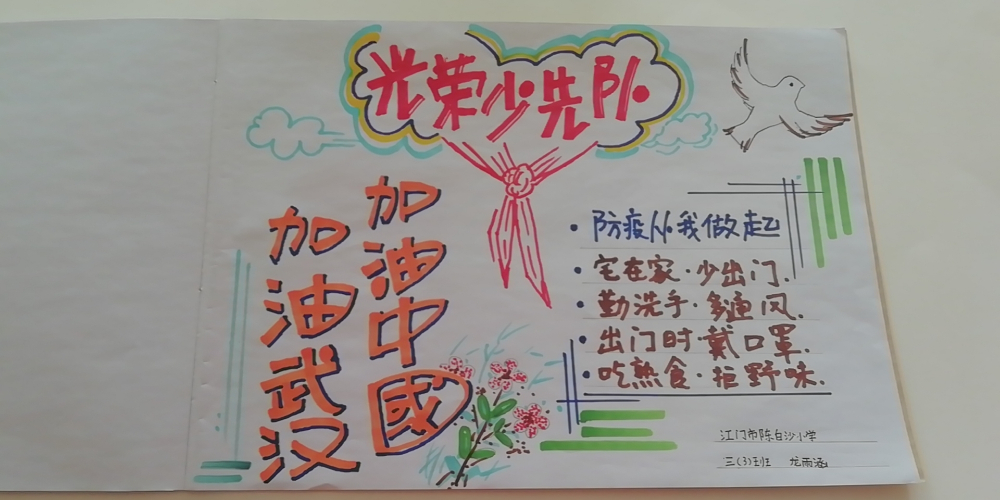 光荣少先队
加油中國
加油武汉
防疫从我做起
宅在家·少出门.
勤洗手·多通风.
出门时·戴口罩.
吃熟食·拒野味.
江门市陈白沙小学
三(3)班 龙雨涵